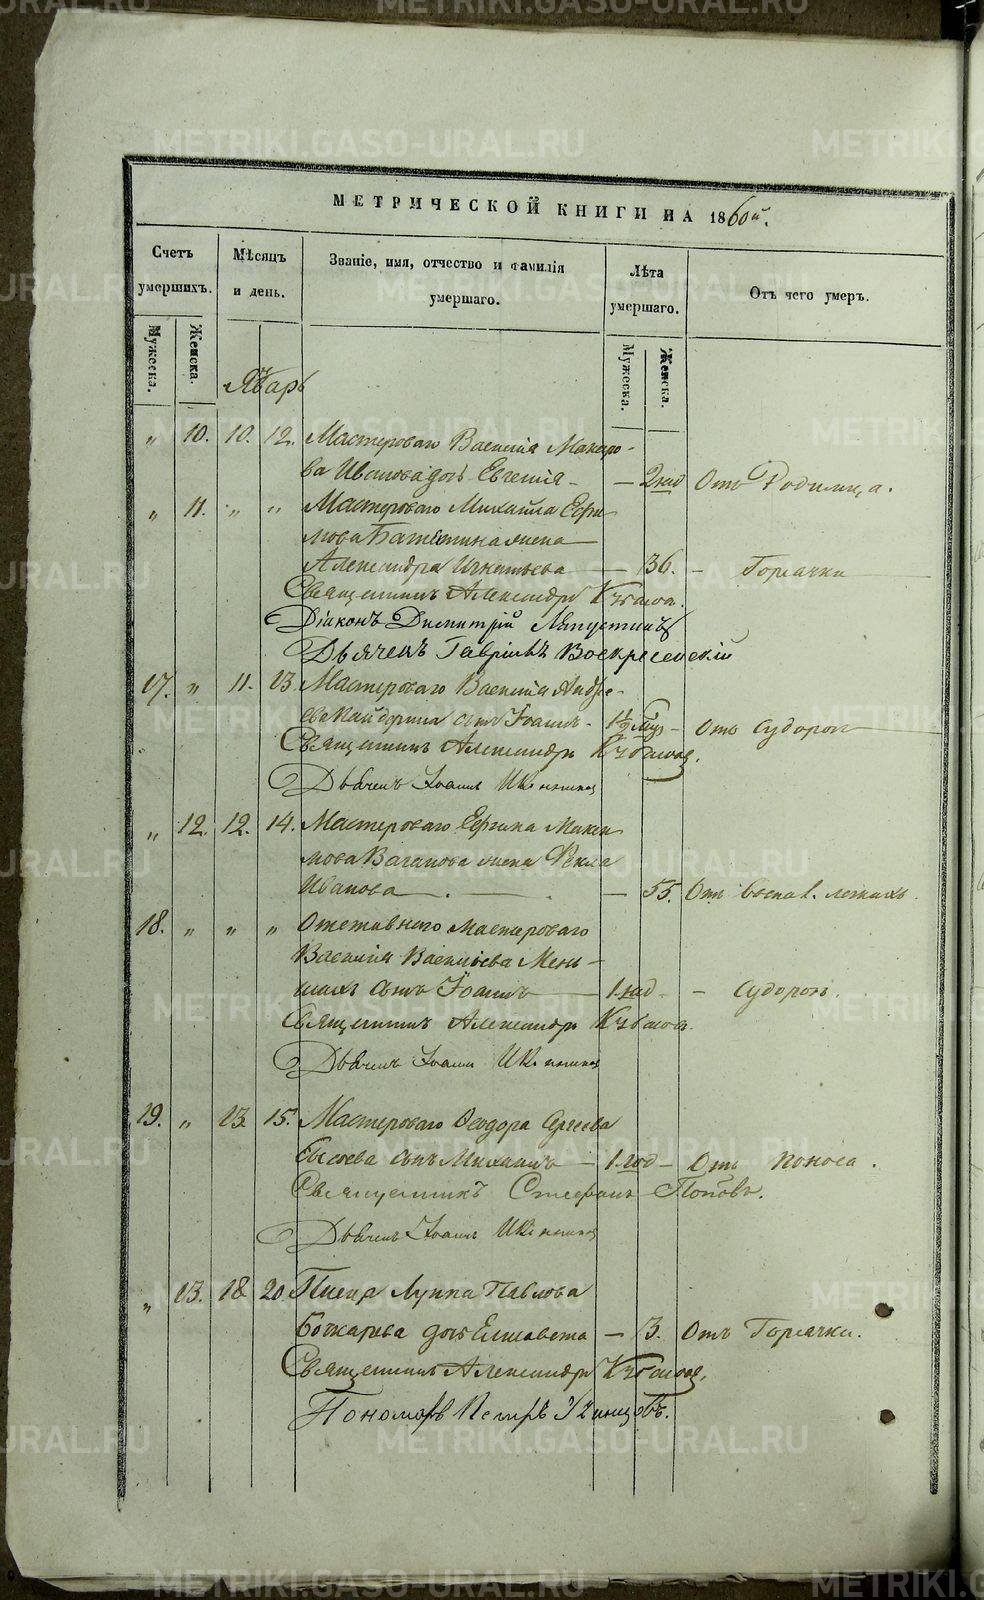 МЕТРИЧЕСКОЙ КНИГИ НА 1860й.
Счетъ умершихъ.
Мѣсяцъ и день.
Званіе, имя, отчество и фамилія умершаго.
Лѣта умершаго.
Отъ чего умеръ.
Мужеска.
Женска.
Мужеска.
Женска.
" 10. 10. 12. Мастероваго Василія
Иванова дочь Евгенія - — 2 год Отъ Родимца.
" 11. " " Мастероваго Михаила Ефи-
мова жена
Александра Игнатьева — — 36. — Горячки
Священникъ Александръ
Діаконъ Димитрій Ляпустинъ
Дьячекъ Гавріилъ Воскресенскій
17. " 11. 13. Мастероваго Василія Андре-
ева сынъ Іоаннъ - 1½ Отъ Судорог
Священникъ Александръ
Дьячекъ Іоаннъ
" 12. 12. 14. Мастероваго
мова Ваганова жена Фекла
Иванова — . — — 55. Отъ воспал. легкихъ.
18. " " " Отставного мастероваго
Василія Васильева Мень-
шихъ сынъ Іоаннъ — 1 год - — Судорог.
Священникъ Александръ
Дьячекъ Іоаннъ
19. " 13. 15. Мастероваго Ѳеодора Сергеева
Сысоева сынъ Михаилъ — 1 год — Отъ Поноса.
Священникъ Стефанъ Поповъ.
Дьячекъ Іоаннъ
" 13. 18. 20. Писца Луппа Павлова
Бочкарева дочь Елисавета — 3. Отъ Горячки.
Священникъ Александръ
Пономарь Петръ
METRIKI.GASO-URAL.RU